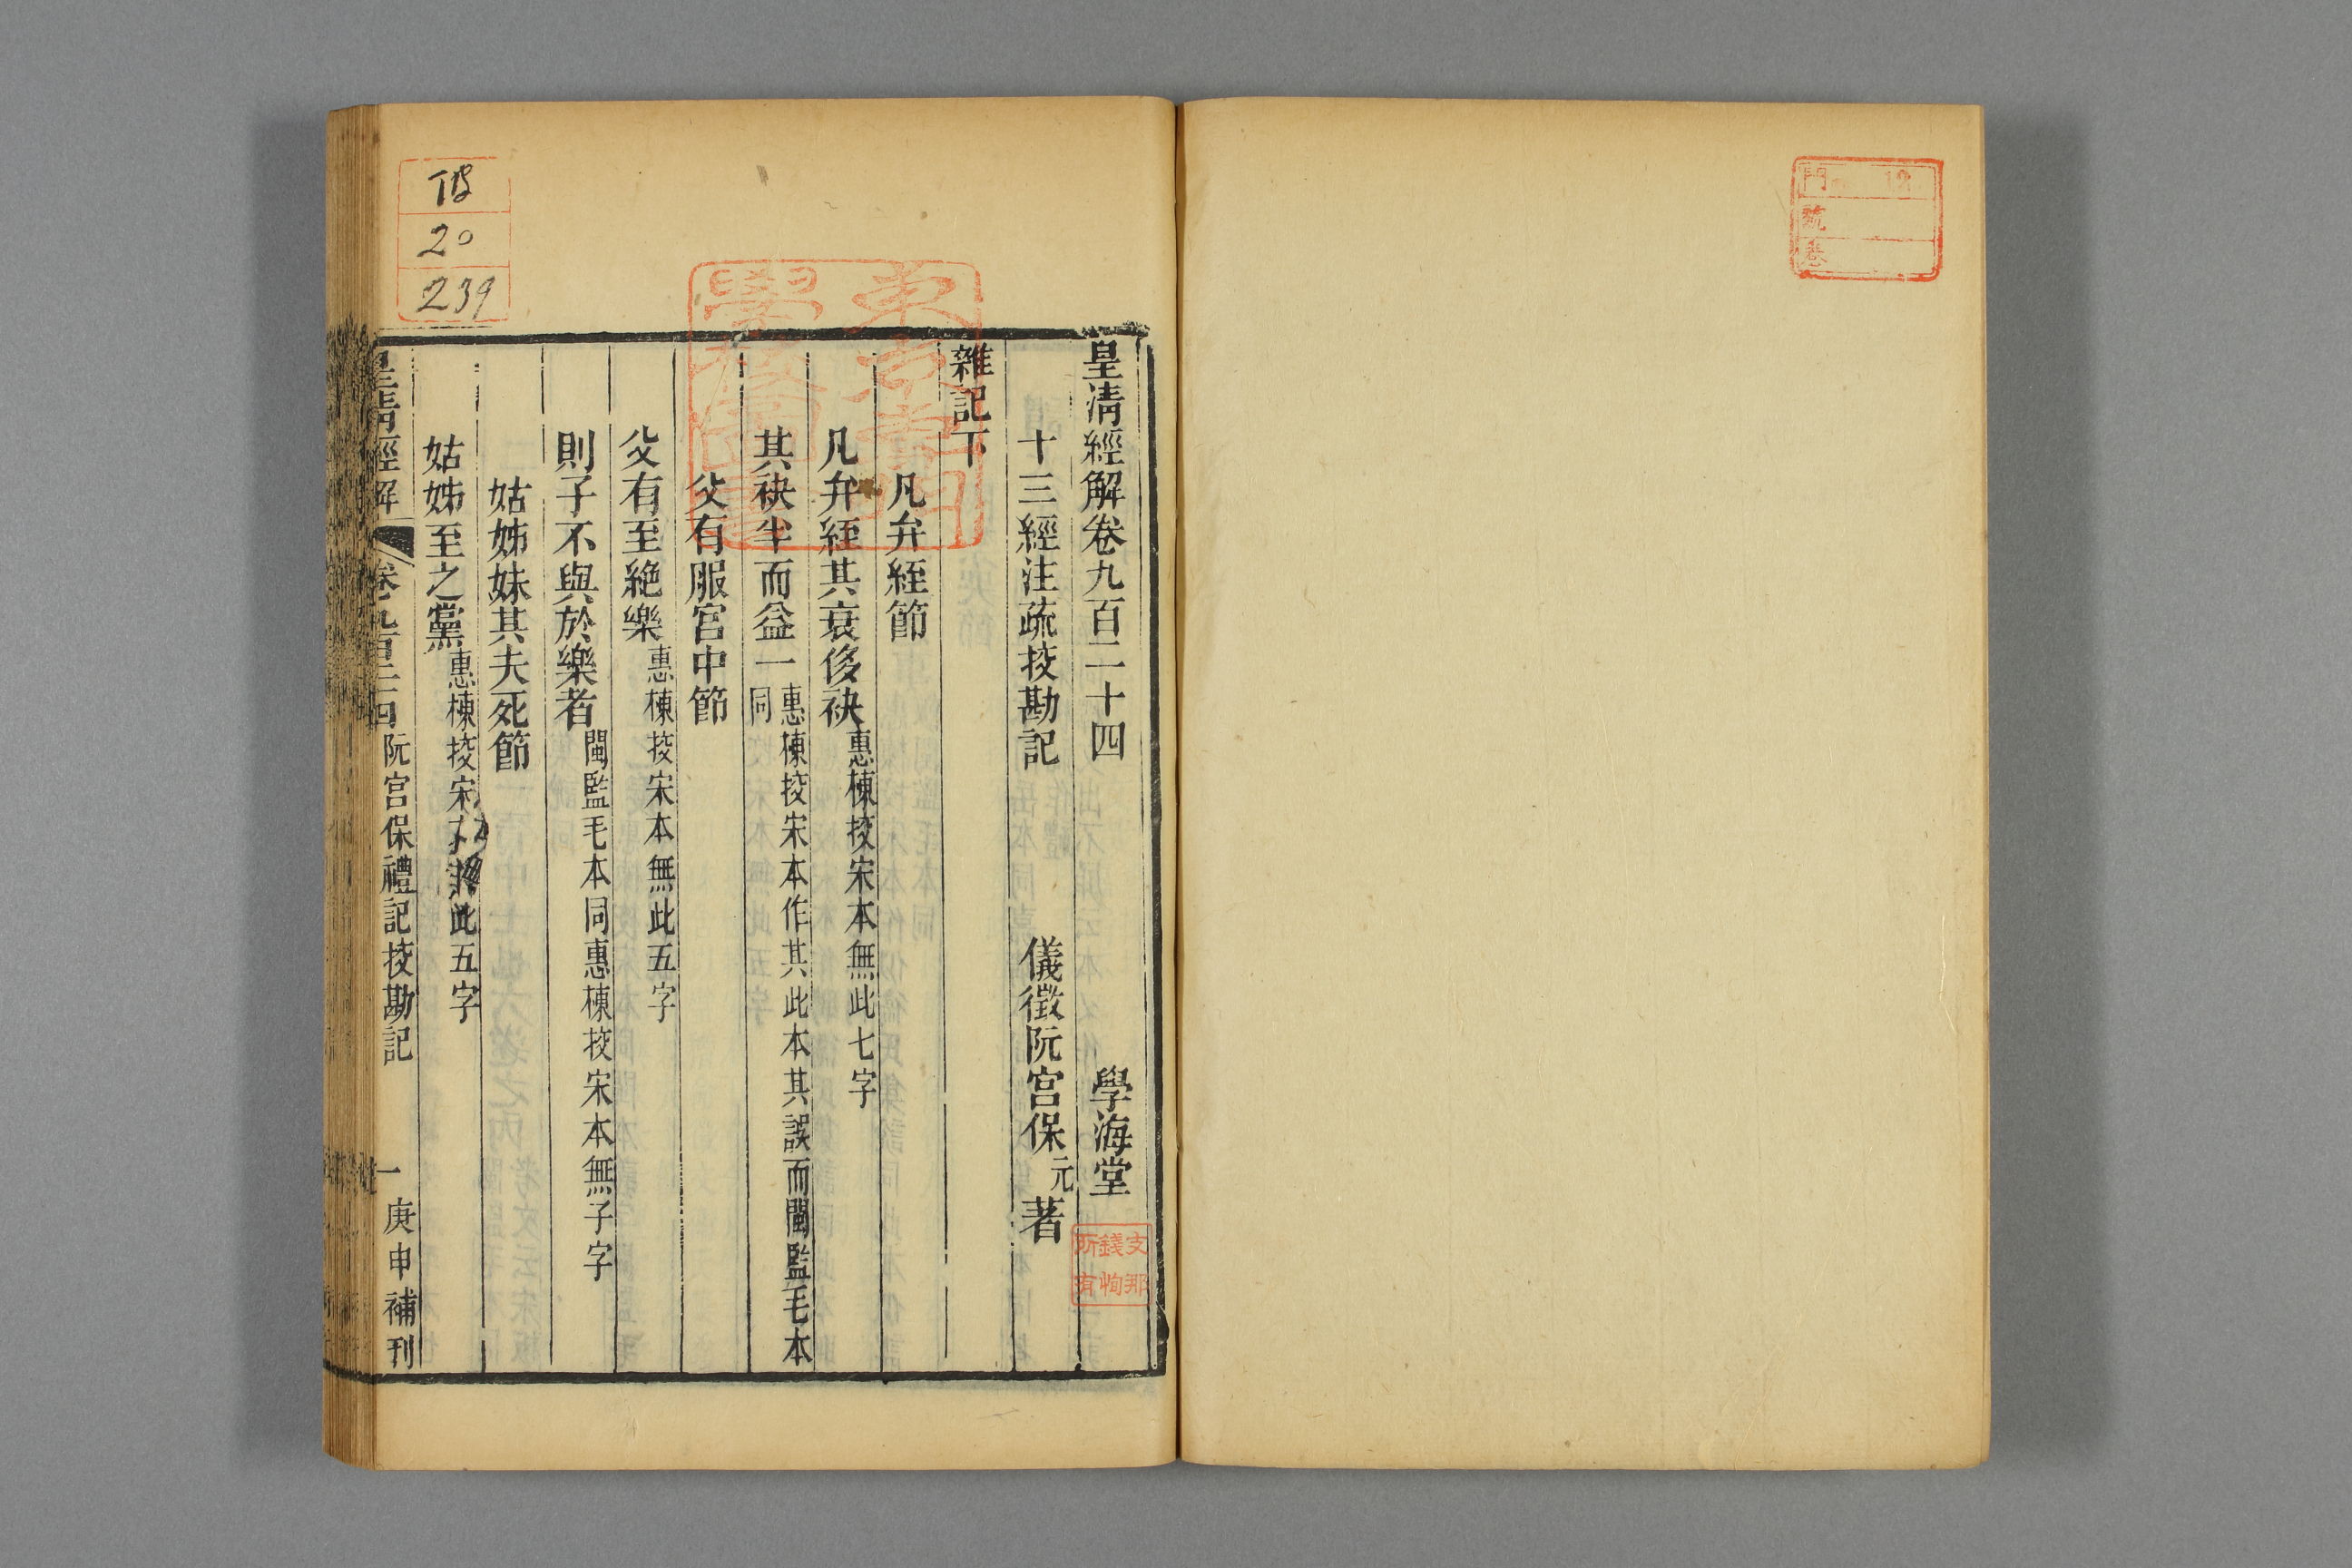 皇清經解卷九百二十四 學海堂
十三經注疏挍勘記 儀徵阮宮保元著
雜記下
凡弁絰節
凡弁絰其衰侈袂惠棟挍宋本無此七字
其袂半而益一惠棟挍宋本作其此本其誤而閩監毛本同
父有服宮中節
父有至絶樂惠棟挍宋本無此五字
則子不與於樂者閩監毛本同惠棟挍宋本無子字
姑姊妹其夫死節
姑姊至之黨惠棟挍宋本無此五字
皇清經解 卷九百二十四 阮宮保禮記挍勘記 一 庚申補刊
支那
錢恂
所有
20
239
門
號
卷